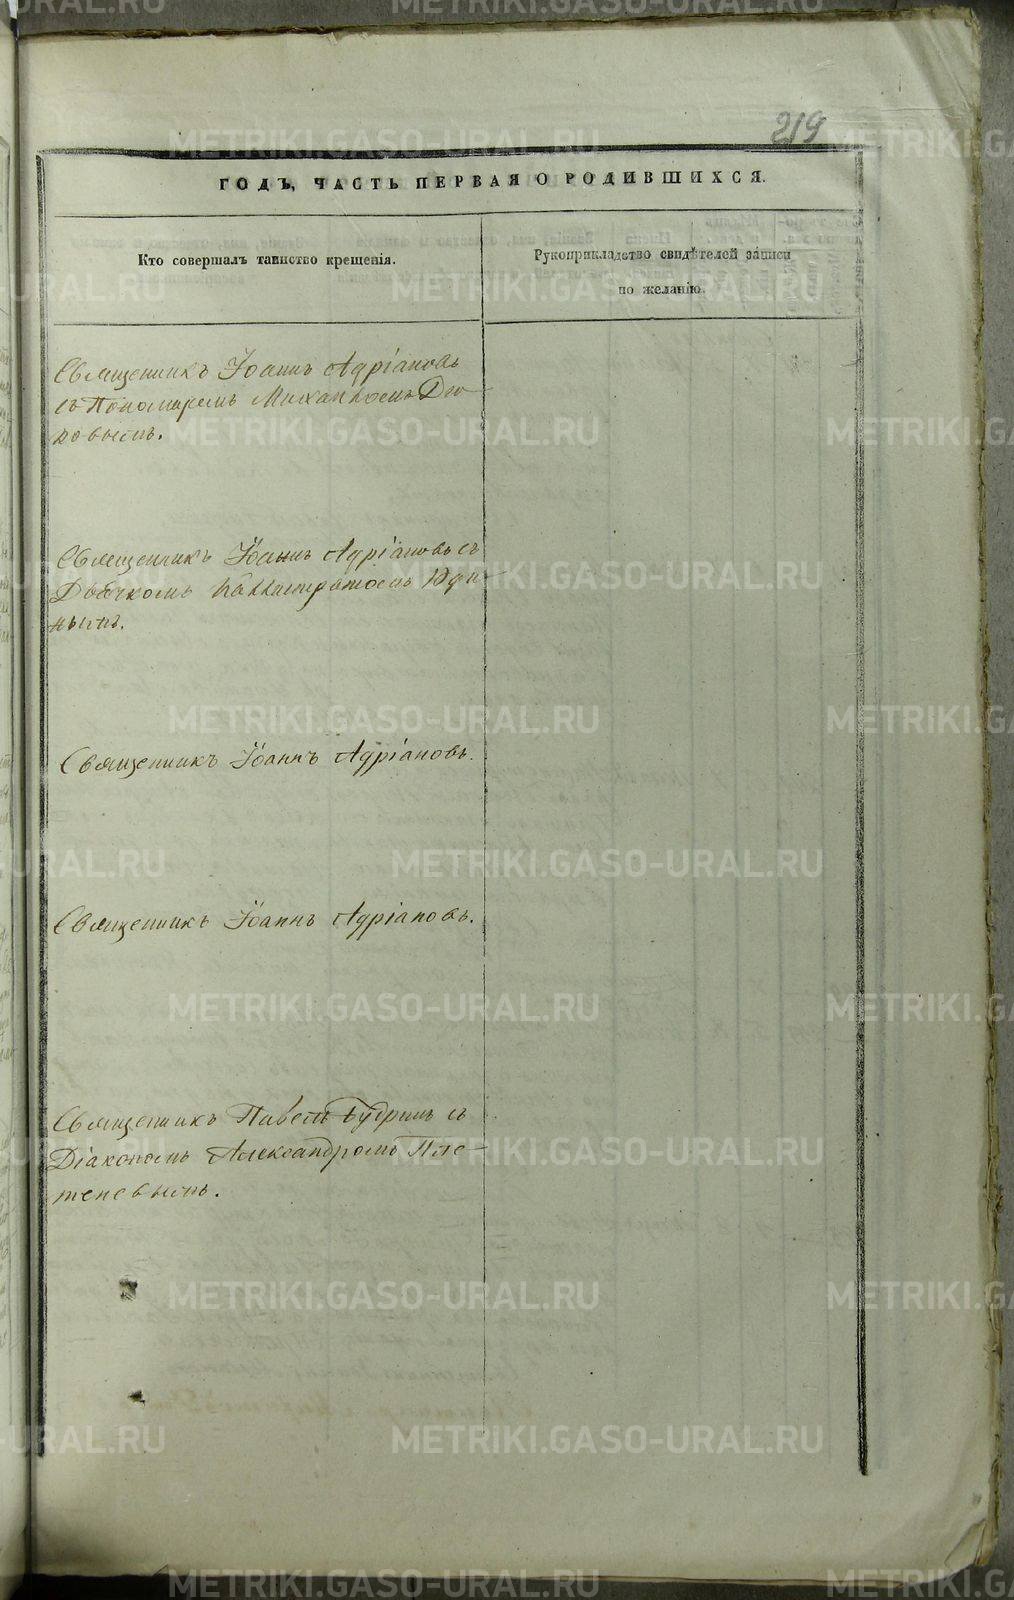 219
ГОДЪ, ЧАСТЬ ПЕРВАЯ О РОДИВШИХСЯ.
Кто совершалъ таинство крещенія.
Рукоприкладство свидѣтелей записи
по желанію.
Священникъ Іоаннъ Адріановъ
съ Пономаремъ Михаиломъ Дю
ковымъ.
Священникъ Іоаннъ Адріановъ съ
Дьячкомъ Каллистратомъ Юди
нымъ.
Священникъ Іоаннъ Адріановъ.
Священникъ Іоаннъ Адріановъ.
Священникъ Павелъ Будринъ съ
Діакономъ Александромъ Пле-
теневымъ.
METRIKI.GASO-URAL.RU